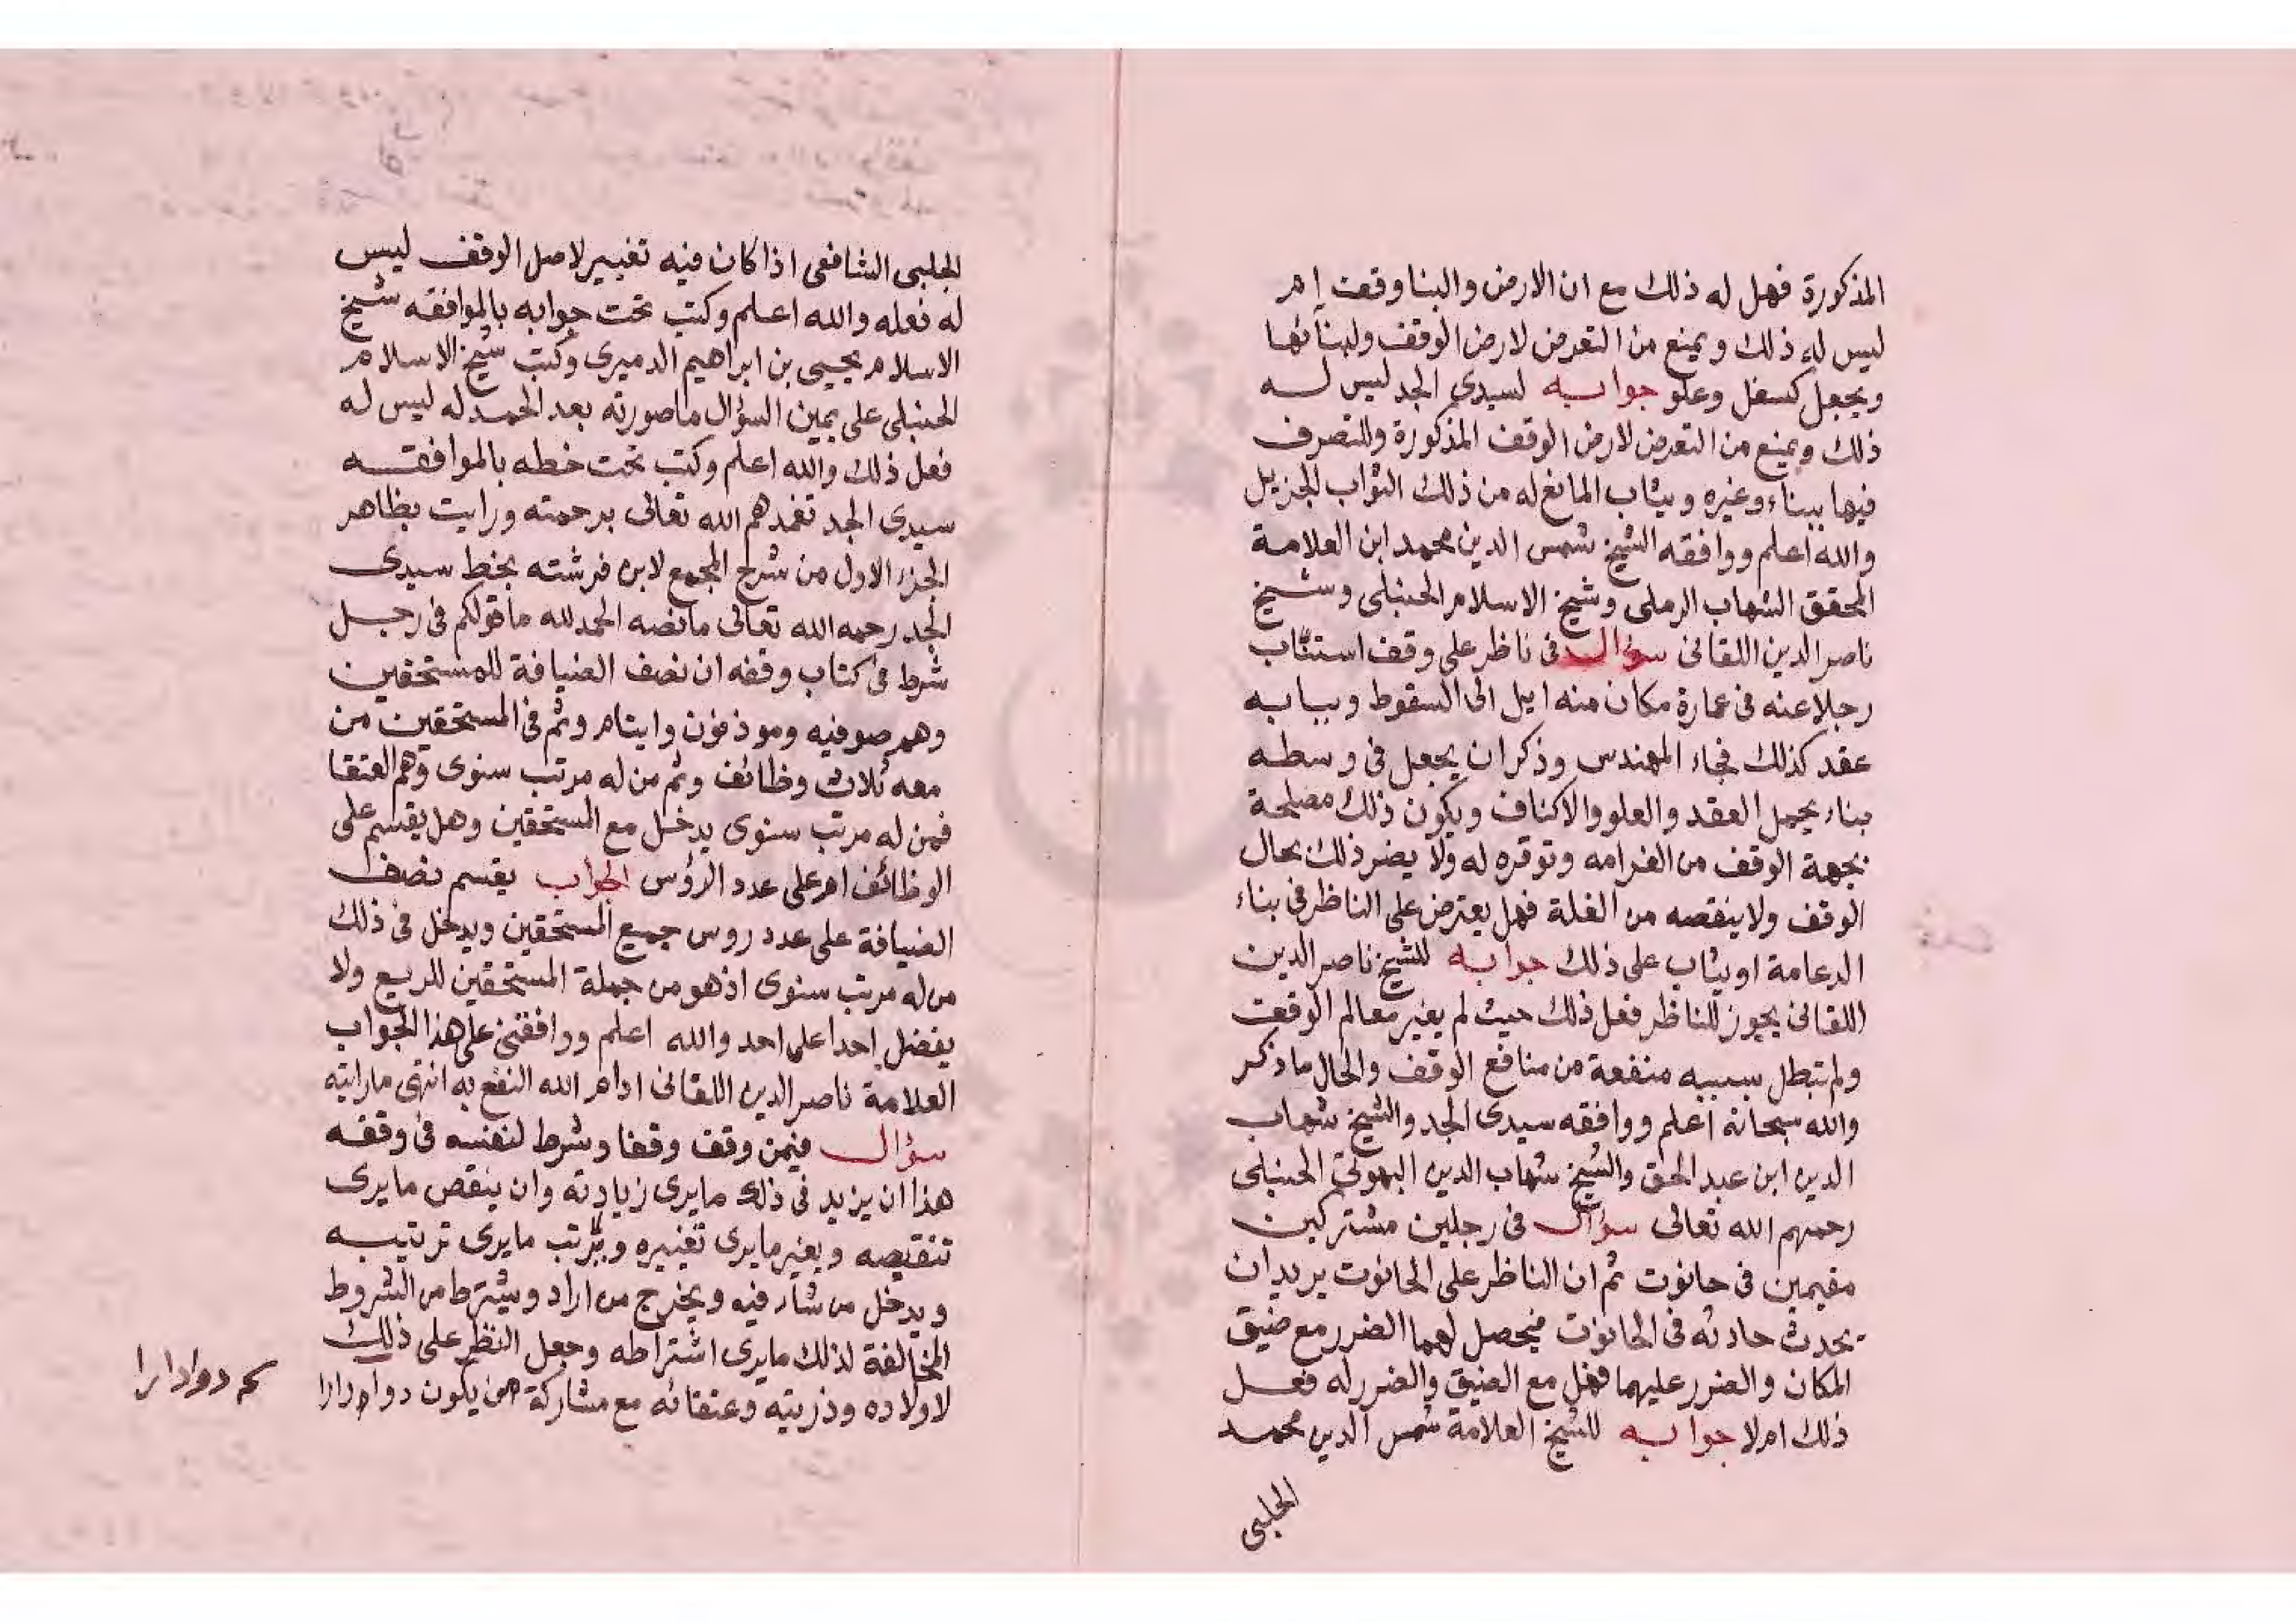 المذكورة فهل له ذلك مع ان الارض والبنا وقعت ام
ليس له ذلك ويمنع من التعرض لارض الوقف ولبنائها
ويجعل كسفل وعلو جوابه لسيدي الجد ليس له
ذلك ويمنع من التعرض لارض الوقف المذكورة وللتصرف
فيها ببناء وغيره ويثاب المانع له من ذلك الثواب الجزيل
والله اعلم ووافقه الشيخ شمس الدين محمد ابن العلامة
المحقق الشهاب الرملى وشيخ الاسلام الحنبلى وشيخ
ناصر الدين اللقانى سؤال فى ناظر على وقف استناب
رجلا عنه فى عمارة مكان منه ايل الى السقوط وببابه
عقد كذلك فجاء المهندس وذكر ان يجعل فى وسطه
بناء يحمل العقد والعلو والاكناف ويكون ذلك مصلحة
بجهة الوقف من الغرامه وتوقره له ولا يضر ذلك بحال
الوقف ولا ينقصه من الغلة فهل يعترض على الناظر فى بناء
الدعامة او يثاب على ذلك جوابه للشيخ ناصر الدين
اللقانى يجوز للناظر فعل ذلك حيث لم يغير معالم الوقف
ولم تبطل بسببه منفعة من منافع الوقف والحال ما ذكر
والله سبحانه اعلم ووافقه سيدى الجد والشيخ شهاب
الدين ابن عبد الحق والشيخ شهاب الدين البهوتى الحنبلى
رحمهم الله تعالى سؤال فى رجلين مشتركين
مقيمين فى حانوت ثم ان الناظر على الحانوت يريد ان
يحدث حادثه فى الحانوت فيحصل لهما الضرر مع ضيق
المكان والضرر عليهما فهل مع الضيق والضرر له فعل
ذلك ام لا جوابه للشيخ العلامة شمس الدين محمد
الحلبى
الحلبى الشافعى اذا كان فيه تغيير لاصل الوقف ليس
له فعله والله اعلم وكتب تحت جوابه بالموافقه شيخ
الاسلام يحيى بن ابراهيم الدميرى وكتب شيخ الاسلام
الحنبلى على يمين السؤال ما صورته بعد الحمد له ليس له
فعل ذلك والله اعلم وكتب تحت خطه بالموافقه
سيدي الجد تغمدهم الله تعالى برحمته ورايت بظاهر
الجزء الاول من شرح المجمع لابن فرشته بخط سيدى
الجد رحمه الله تعالى ما نصه الحمد لله ما قولكم فى رجل
شرط فى كتاب وقفه ان نصف الضيافة للمستحقين
وهم صوفيه وموذنون وايتام وثم فى المستحقين من
معه ثلاث وظائف وثم من له مرتب سنوى وهم العتقا
فمن له مرتب سنوى يدخل مع المستحقين وهل يقسم على
الوظائف ام على عدد الرؤس الجواب يقسم نصف
الضيافة على عدد روس جميع المستحقين ويدخل فى ذلك
من له مرتب سنوى اذ هو من جملة المستحقين للريع ولا
يفضل احدا على احد والله اعلم ووافقنى على هذا الجواب
العلامة ناصر الدين اللقانى ادام الله النفع به انتهى ما رايته
سؤال فيمن وقف وقفا وشرط لنفسه فى وقفه
هذا ان يزيد فى ذلك ما يرى زيادته وان ينقص ما يرى
تنقيصه ويغير ما يرى تغييره ويرتب ما يرى ترتيبه
ويدخل من شاء فيه ويخرج من اراد ويشترط من الشروط
المخالفة لذلك ما يرى اشتراطه وجعل النظر على ذلك
لاولاده وذريته وعتقائه مع مشاركة من يكون دوادارا
دوادارا